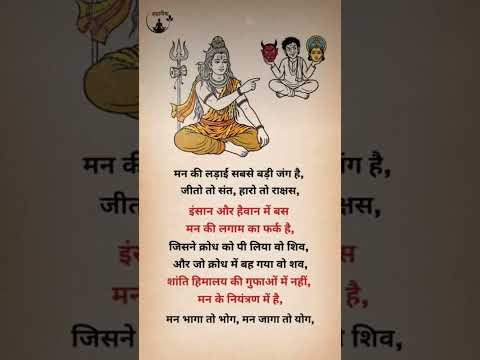 मन की लड़ाई सबसे बड़ी जंग है,
जीतो तो संत, हारो तो राक्षस,
इंसान और हैवान में बस
मन की लगाम का फर्क है,
जिसने क्रोध को पी लिया वो शिव,
और जो क्रोध में बह गया वो शव,
शांति हिमालय की गुफाओं में नहीं,
मन के नियंत्रण में है,
मन भागा तो भोग, मन जागा तो योग,